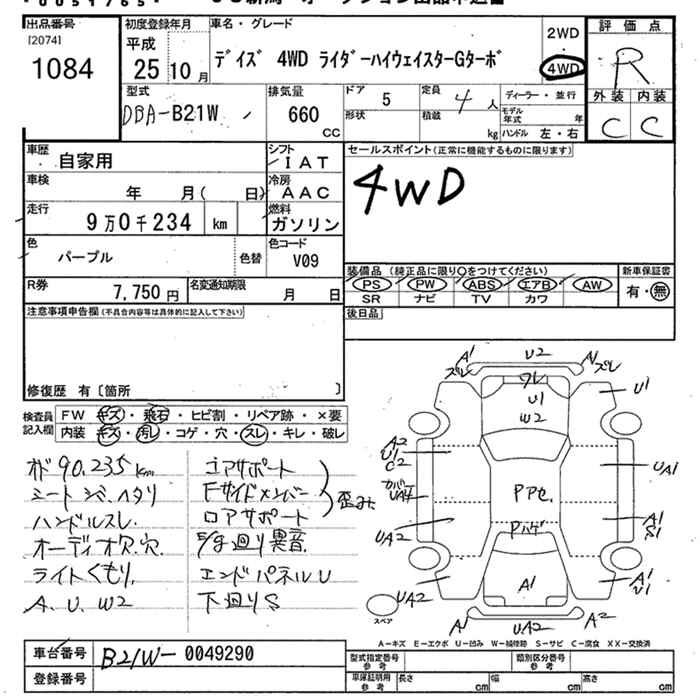 出品番号
[2074]
1084
初度登録年月
平成
25 10月
車名・グレード
デイズ 4WD ライダーハイウェイスターGターボ
2WD
・
4WD
評価点
R
外装 内装
C C
型式
DBA-B21W
排気量
660
CC
ドア 5
形状
定員 4人
積載 kg
ディーラー・並行
モデル年式 年
ハンドル 左・右
車歴
自家用
シフト
IAT
車検
年 月( 日)
冷房
AAC
走行
9万0千234 km
燃料
ガソリン
色
パープル
色替
色コード
V09
R券
7,750円
名変通知期限
月 日
セールスポイント(正常に機能するものに限ります)
4WD
装備品(純正品に限り○をつけてください)
PS PW ABS エアB AW
SR ナビ TV カワ
新車保証書
有・無
後日品
注意事項申告欄(不具合内容等は具体的に記入して下さい)
修復歴 有〔箇所 〕
検査員記入欄
FW キズ・飛石・ヒビ割・リペア跡・×要
内装 キズ・汚レ・コゲ・穴・スレ・キレ・破レ
オド90,235km
シートシミ、ヘタリ
ハンドルスレ
オーディオ欠、穴
ライトくもり
A、U、W2
コアサポート
Fサイドメンバー
ロアサポート
歪み
異音
エンドパネルU
下廻りS
A1 U2 A1
ズレ ワレ ズレ
U1
W2
U1
A2
U1
C2
カバー
UA4
UA1
Pアセ
UA2
Pハゲ
A1
S1
UA2
A1
A1
U1
A1 UA2 A2
スペア
A-キズ E-エクボ U-凹み W-補修跡 S-サビ C-腐食 XX-交換済
車台番号
B21W-0049290
登録番号
型式指定番号参考
類別区分番号参考
車庫証明用参考
長さ cm 幅 cm 高さ cm